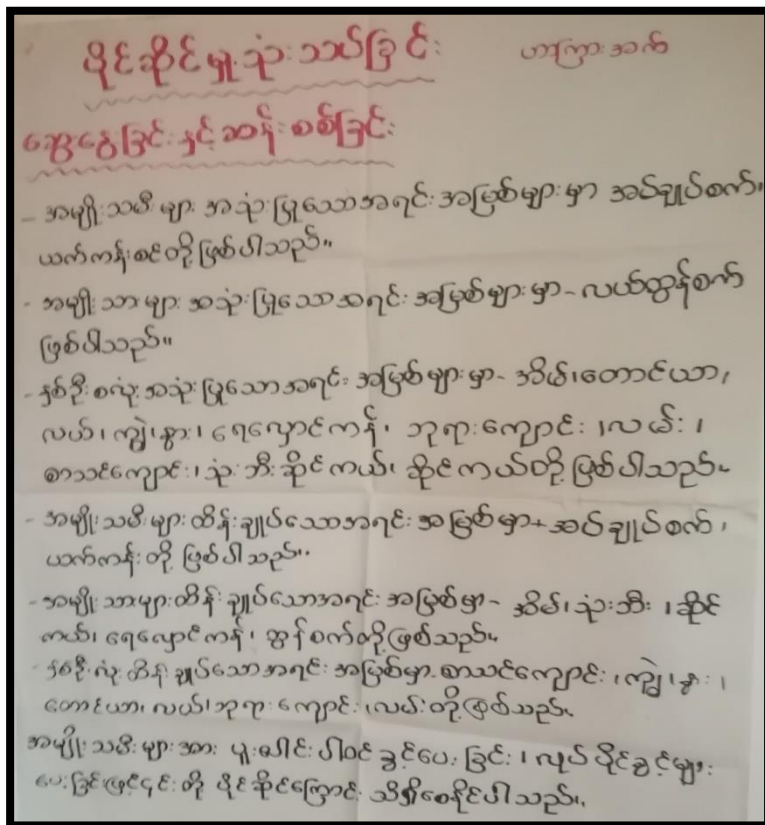 ပိုင်ဆိုင်မှု သုံးသပ်ခြင်း ဟာကြားအက်
ဆွေးနွေးခြင်းနှင့်ဆန်းစစ်ခြင်း
- အမျိုးသမီးများ အသုံးပြုသောအရင်းအမြစ်များမှာ အပ်ချုပ်စက်၊
ယက်ကန်းစင်တို့ဖြစ်ပါသည်။
- အမျိုးသားများ အသုံးပြုသောအရင်းအမြစ်များမှာ - လယ်ထွန်စက်
ဖြစ်ပါသည်။
- နှစ်ဦးစလုံးအသုံးပြုသောအရင်းအမြစ်များမှာ - အိမ်၊တောင်ယာ၊
လယ်၊ ကျွဲ၊နွား၊ ရေလှောင်ကန်၊ ဘုရားကျောင်း၊လမ်း၊
စာသင်ကျောင်း၊သုံးဘီးဆိုင်ကယ်၊ ဆိုင်ကယ်တို့ဖြစ်ပါသည်။
- အမျိုးသမီးများထိန်းချုပ်သောအရင်းအမြစ်မှာ - အပ်ချုပ်စက်၊
ယက်ကန်းတို့ ဖြစ်ပါသည်။
- အမျိုးသားများထိန်းချုပ်သောအရင်းအမြစ်မှာ - အိမ်၊သုံးဘီး၊ဆိုင်
ကယ်၊ ရေလှောင်ကန်၊ ထွန်စက်တို့ဖြစ်သည်။
- နှစ်ဦးလုံးထိန်းချုပ်သောအရင်းအမြစ်မှာ - စာသင်ကျောင်း၊ကျွဲ၊နွား၊
တောင်ယာ၊ လယ်၊ဘုရားကျောင်း၊လမ်းတို့ဖြစ်သည်။
အမျိုးသမီးများအား ပူးပေါင်းပါဝင်ခွင့်ပေးခြင်း၊လုပ်ပိုင်ခွင့်များ
ပေးခြင်းဖြင့်၎င်းတို့ ပိုင်ဆိုင်ကြောင်း သိရှိစေနိုင်ပါသည်။